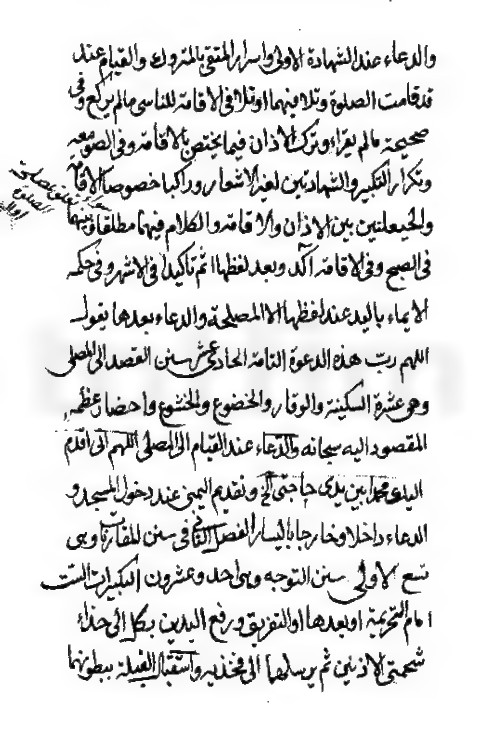 والدعاء عند الشهادة الاولى واسرار المتقى بالمتروك والقيام عند
قد قامت الصلوة وتلافيهما اوتلافى الاقامة للناسى مالم يركع وفى
صحيحة مالم يقراء وترك الاذان فيما يختص بالاقامة وفى الصومعه
وتكرار التكبير والشهادتين لغير الاشعار وراكبا خصوصا الاقامة
والحيعلتين بين الاذان والاقامة والكلام فيهما مطلقا وبينهما
فى الصبح وفى الاقامة اكد وبعد لفظها اتم تاكيدا فى الاشهر وفى حكمه
الايماء باليد عند لفظها الا لمصلحة والدعاء بعدها يقول
اللهم رب هذه الدعوة التامة الحادى عشر سنن القصد الى المصلى
وهى عشرة السكينة والوقار والخضوع والخشوع واحضار عظمة
المقصود اليه سبحانه والدعاء عند القيام الى المصلى اللهم انى اقدم
اليك محمدا بين يدى حاجتى الخ وتقديم اليمنى عند دخول المسجد و
الدعاء داخلا وخارجا باليسار الفصل الثانى فى سنن المقارنات وهى
تسع الاولى سنن التوجه وهى احد وعشرون التكبيرات الست
امام التحريمة او بعدها او التفريق ورفع اليدين بكل الى حذاء
شحمتى الاذنين ثم يرسلها الى فخذيه واستقبال القبلة ببطونهما